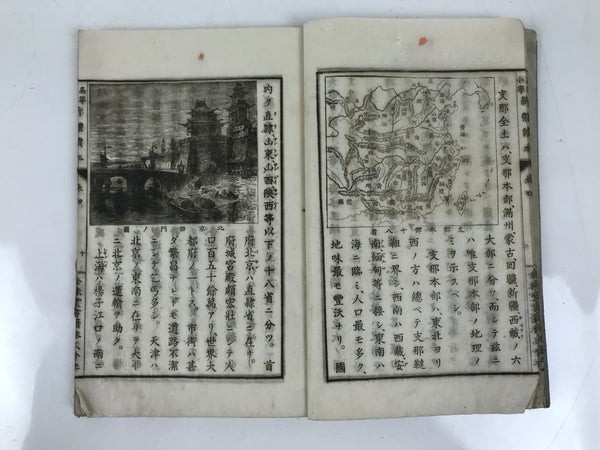 支那全土ハ支那本部滿州蒙古回疆新疆西藏ノ六
大部ニ分ツ而シテ茲ニ
ハ唯支那本部ノ地理ノ
ミヲ示スベシ。
支那本部ハ東北ヨリ
西ノ方ハ總ベテ支那韃
靼ニ界シ西南ハ西藏安
南緬甸等ニ接シ東南ハ
海ニ臨ミ人口最モ多ク、
地味最モ豐沃ナリ。國
内ヲ直隷山東山西陜西等以下ノ十八省ニ分ツ。首
府北京ハ直隷省ニ在リ。
府城宮殿頗宏壯ニシテ人
口百五十餘萬アリ世界大
都府ノ一トス。市街ハ甚
ダ繁昌ナレドモ道路不潔
ニシテ乞丐多シ。天津ハ
北京ノ東南ニ在リテ大イ
ニ北京ノ運輸ヲ助ク。
上海ハ楊子江口ノ南ニ
北京西門ノ圖